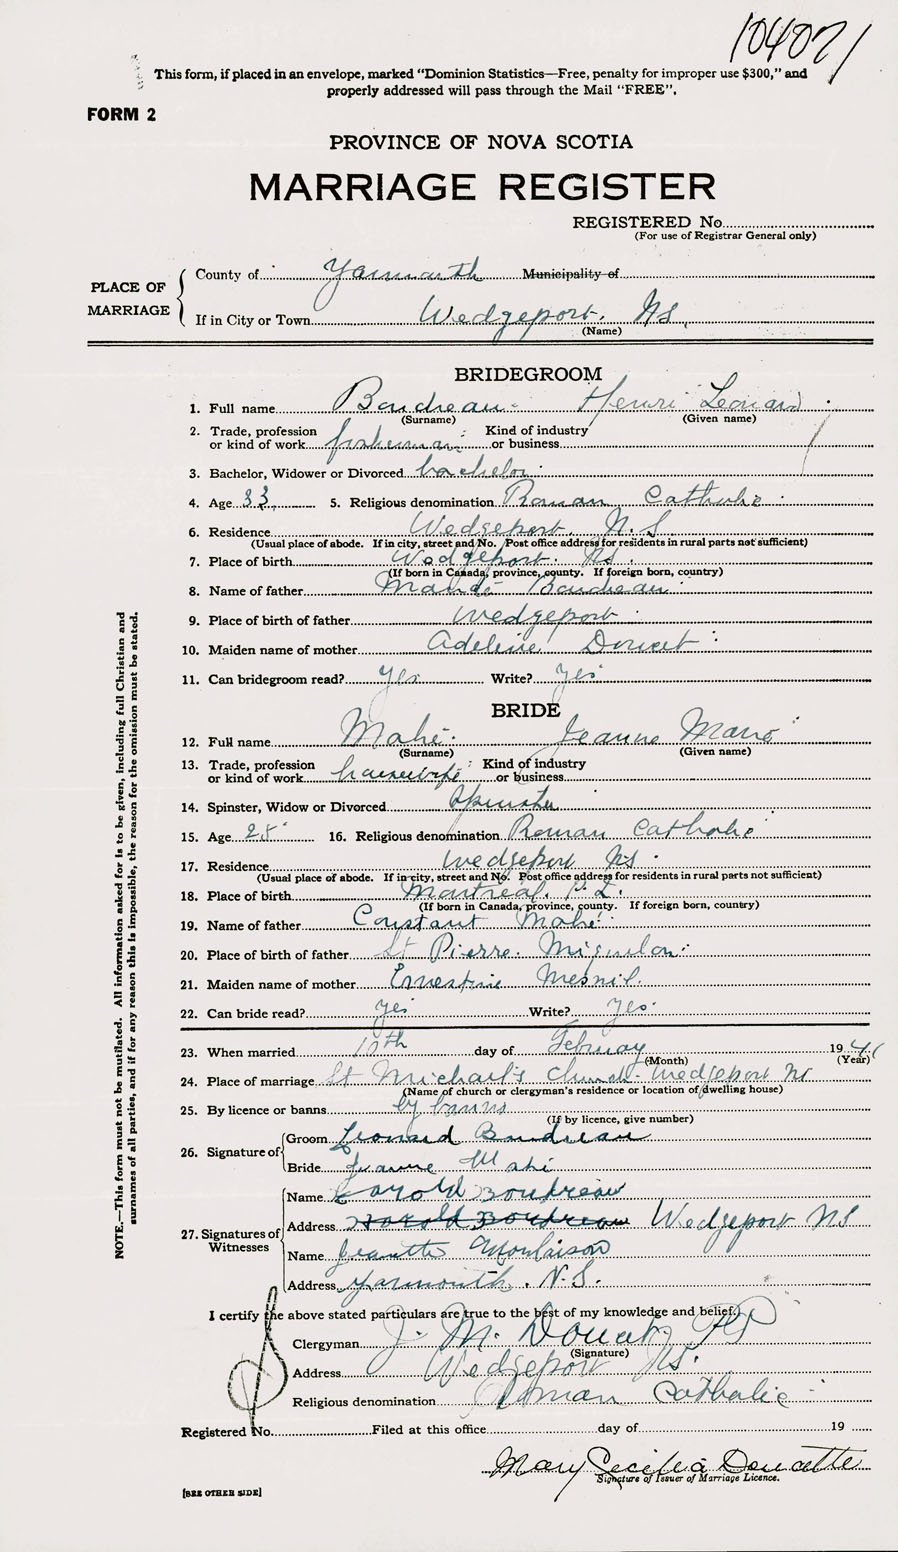 104071
This form, if placed in an envelope, marked "Dominion Statistics—Free, penalty for improper use $300," and
properly addressed will pass through the Mail "FREE".
FORM 2
PROVINCE OF NOVA SCOTIA
MARRIAGE REGISTER
REGISTERED No.
(For use of Registrar General only)
PLACE OF MARRIAGE
County of Yarmouth Municipality of
If in City or Town Wedgeport. NS
(Name)
BRIDEGROOM
1. Full name Boudreau Henri Leonard
(Surname) (Given name)
2. Trade, profession or kind of work fisherman Kind of industry or business
3. Bachelor, Widower or Divorced bachelor
4. Age 33 5. Religious denomination Roman Catholic
6. Residence Wedgeport N.S
(Usual place of abode. If in city, street and No. Post office address for residents in rural parts not sufficient)
7. Place of birth Wedgeport. NS.
(If born in Canada, province, county. If foreign born, country)
8. Name of father Mandé Boudreau
9. Place of birth of father Wedgeport
10. Maiden name of mother Adeline Doucet
11. Can bridegroom read? yes Write? yes
BRIDE
12. Full name Mahé Jeanne
(Surname) (Given name)
13. Trade, profession or kind of work housewife Kind of industry or business
14. Spinster, Widow or Divorced Spinster
15. Age 28 16. Religious denomination Roman Catholic
17. Residence Wedgeport NS
(Usual place of abode. If in city, street and No. Post office address for residents in rural parts not sufficient)
18. Place of birth Montreal.
(If born in Canada, province, county. If foreign born, country)
19. Name of father Constant Mahé
20. Place of birth of father St Pierre Miquelon
21. Maiden name of mother Ernestine Mesnil
22. Can bride read? yes Write? yes
23. When married 10th day of February 19
(Month) (Year)
24. Place of marriage St Michael's Church Wedgeport NS
(Name of church or clergyman's residence or location of dwelling house)
25. By licence or banns by banns
(If by licence, give number)
26. Signature of
Groom Leonard Boudreau
Bride Jeanne Mahé
27. Signatures of Witnesses
Name Harold Boudreau
Address Harold Boudreau Wedgeport NS
Name Jeanette Moulaison
Address Yarmouth. N.S.
I certify the above stated particulars are true to the best of my knowledge and belief.
Clergyman J. M.
(Signature)
Address Wedgeport NS.
Religious denomination Roman Catholic
Registered No. Filed at this office day of 19
Mary Cecilia Doucette
Signature of Issuer of Marriage Licence.
[SEE OTHER SIDE]
NOTE.—This form must not be mutilated. All information asked for is to be given, including full Christian and
surnames of all parties, and if for any reason this is impossible, the reason for the omission must be stated.